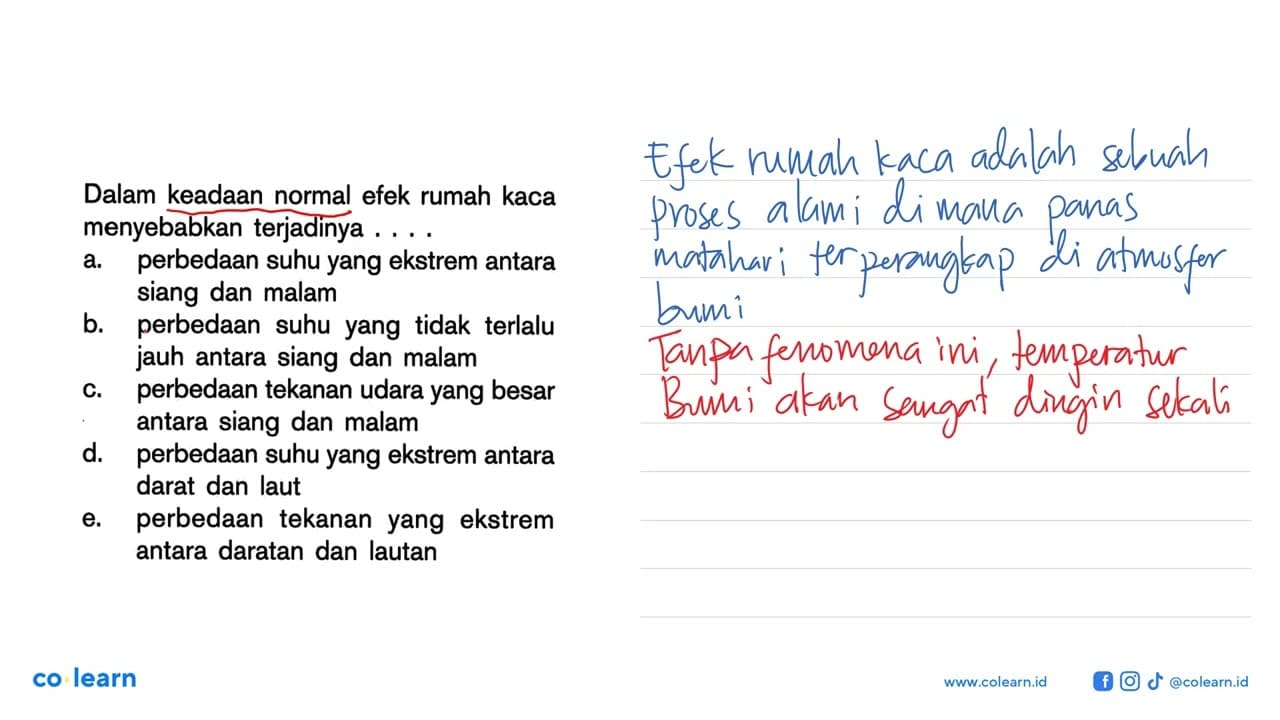 Dalam keadaan normal efek rumah kaca
menyebabkan terjadinya . . . .
a. perbedaan suhu yang ekstrem antara
siang dan malam
b. perbedaan suhu yang tidak terlalu
jauh antara siang dan malam
c. perbedaan tekanan udara yang besar
antara siang dan malam
d. perbedaan suhu yang ekstrem antara
darat dan laut
e. perbedaan tekanan yang ekstrem
antara daratan dan lautan
Efek rumah kaca adalah sebuah
proses alami dimana panas
matahari terperangkap di atmosfer
bumi
Tanpa fenomena ini, temperatur
Bumi akan sangat dingin sekali
co learn
www.colearn.id
@colearn.id